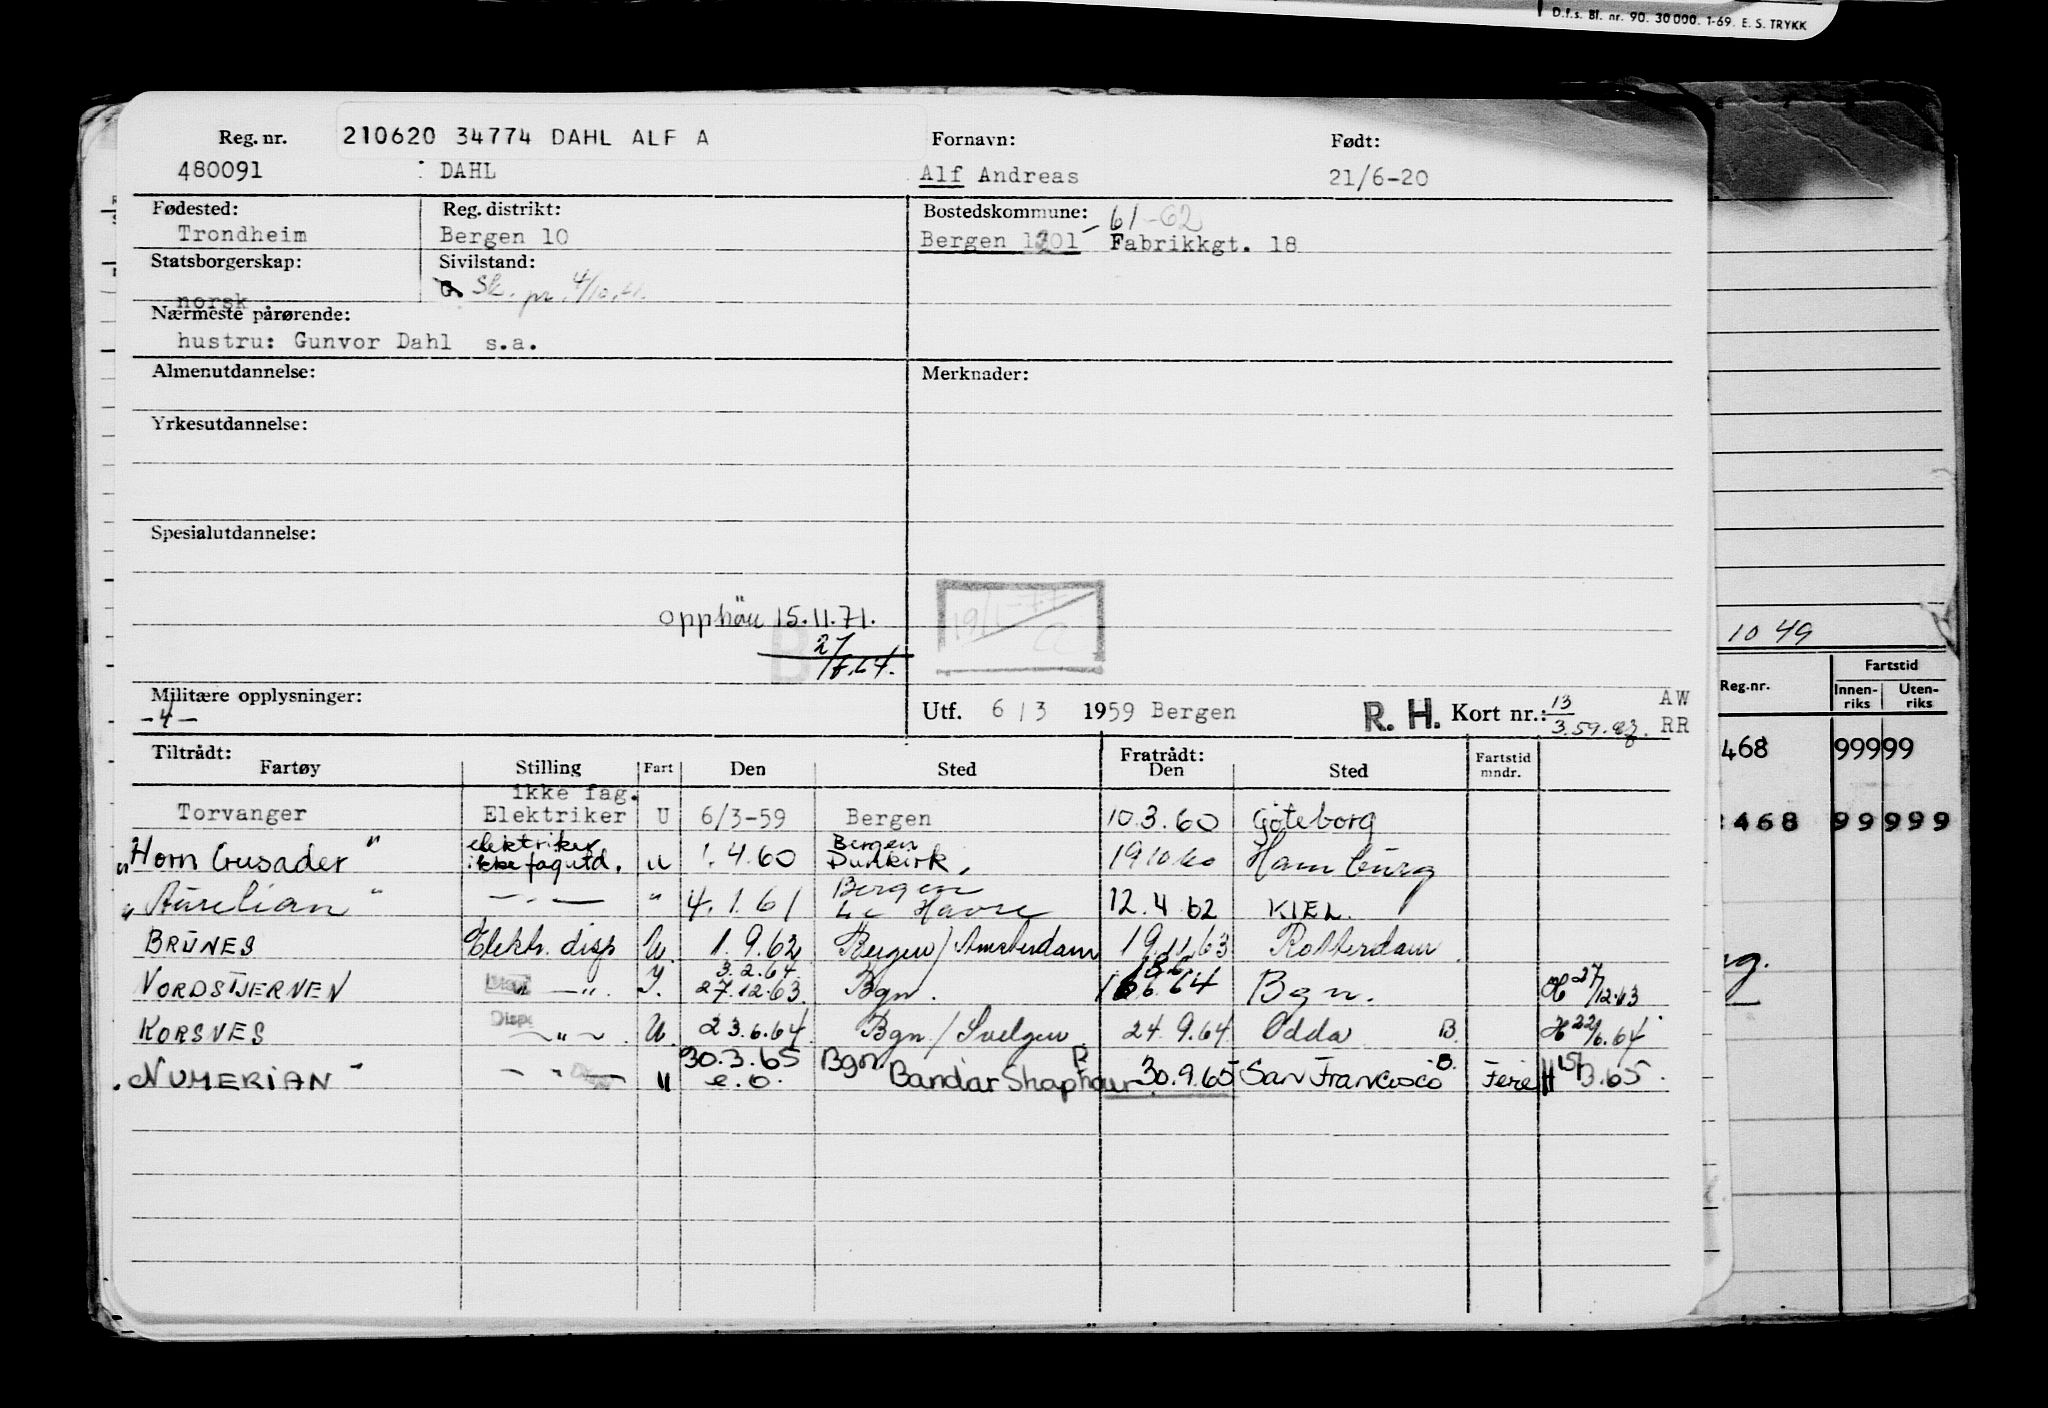 D.f.s. Bl. nr. 90. 30 000. 1-69. E. S. TRYKK
Reg. nr. 210620 34774 DAHL ALF A Fornavn: Født:
480091 DAHL Alf Andreas 21/6-20
Fødested: Reg. distrikt: Bostedskommune: 61-62
Trondheim Bergen 10 Bergen 1301 Fabrikkgt. 18
Statsborgerskap: Sivilstand:
norsk G. Sk. pr. 4/10.61.
Nærmeste pårørende:
hustru: Gunvor Dahl s.a.
Almenutdannelse: Merknader:
Yrkesutdannelse:
Spesialutdannelse:
opphøu 15.11.71.
19/1-77
27/8.64.
10 49
Militære opplysninger:
-4-
Utf. 6/3 1959 Bergen R. H. Kort nr.: 13/3.59. AW RR
Reg.nr. Fartstid Innen-riks Uten-riks
Tiltrådt: Fratrådt:
Fartøy Stilling Fart Den Sted Den Sted Fartstid mndr.
468 99999
468 99999
Torvanger ikke fag. Elektriker U 6/3-59 Bergen 10.3.60 Göteborg
"Horn Crusader" elektriker ikke fagutd. u 1.4.60 Bergen Dunkirk, 19 10 60 Hamburg
"Aurelian" -"- " 4.1.61 Bergen Le Havre 12.4.62 KIEL.
BRUNES Elektr. disp U. 1.9.62 Bergen/Amsterdam 19.11.63 Rotterdam
NORDSTJERNEN -"- I. 3.2.64 27.12.63 Bgn. 16.6.64 Bgn. H 27/12.63
KORSNES Disp -"- U. 23.6.64 Bgn/Svelgen 24.9.64 Odda B. H 22/6.64
"NUMERIAN" -"- " 30.3.65 e.o. Bgn. Bandar Shaphour 30.9.65 San Francisco B. Ferie H 15/3.65.